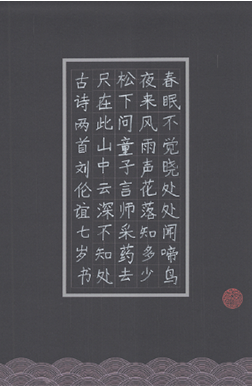 春眠不觉晓处处闻啼鸟
夜来风雨声花落知多少
松下问童子言师采药去
尺在此山中云深不知处
古诗两首刘伦谊七岁书